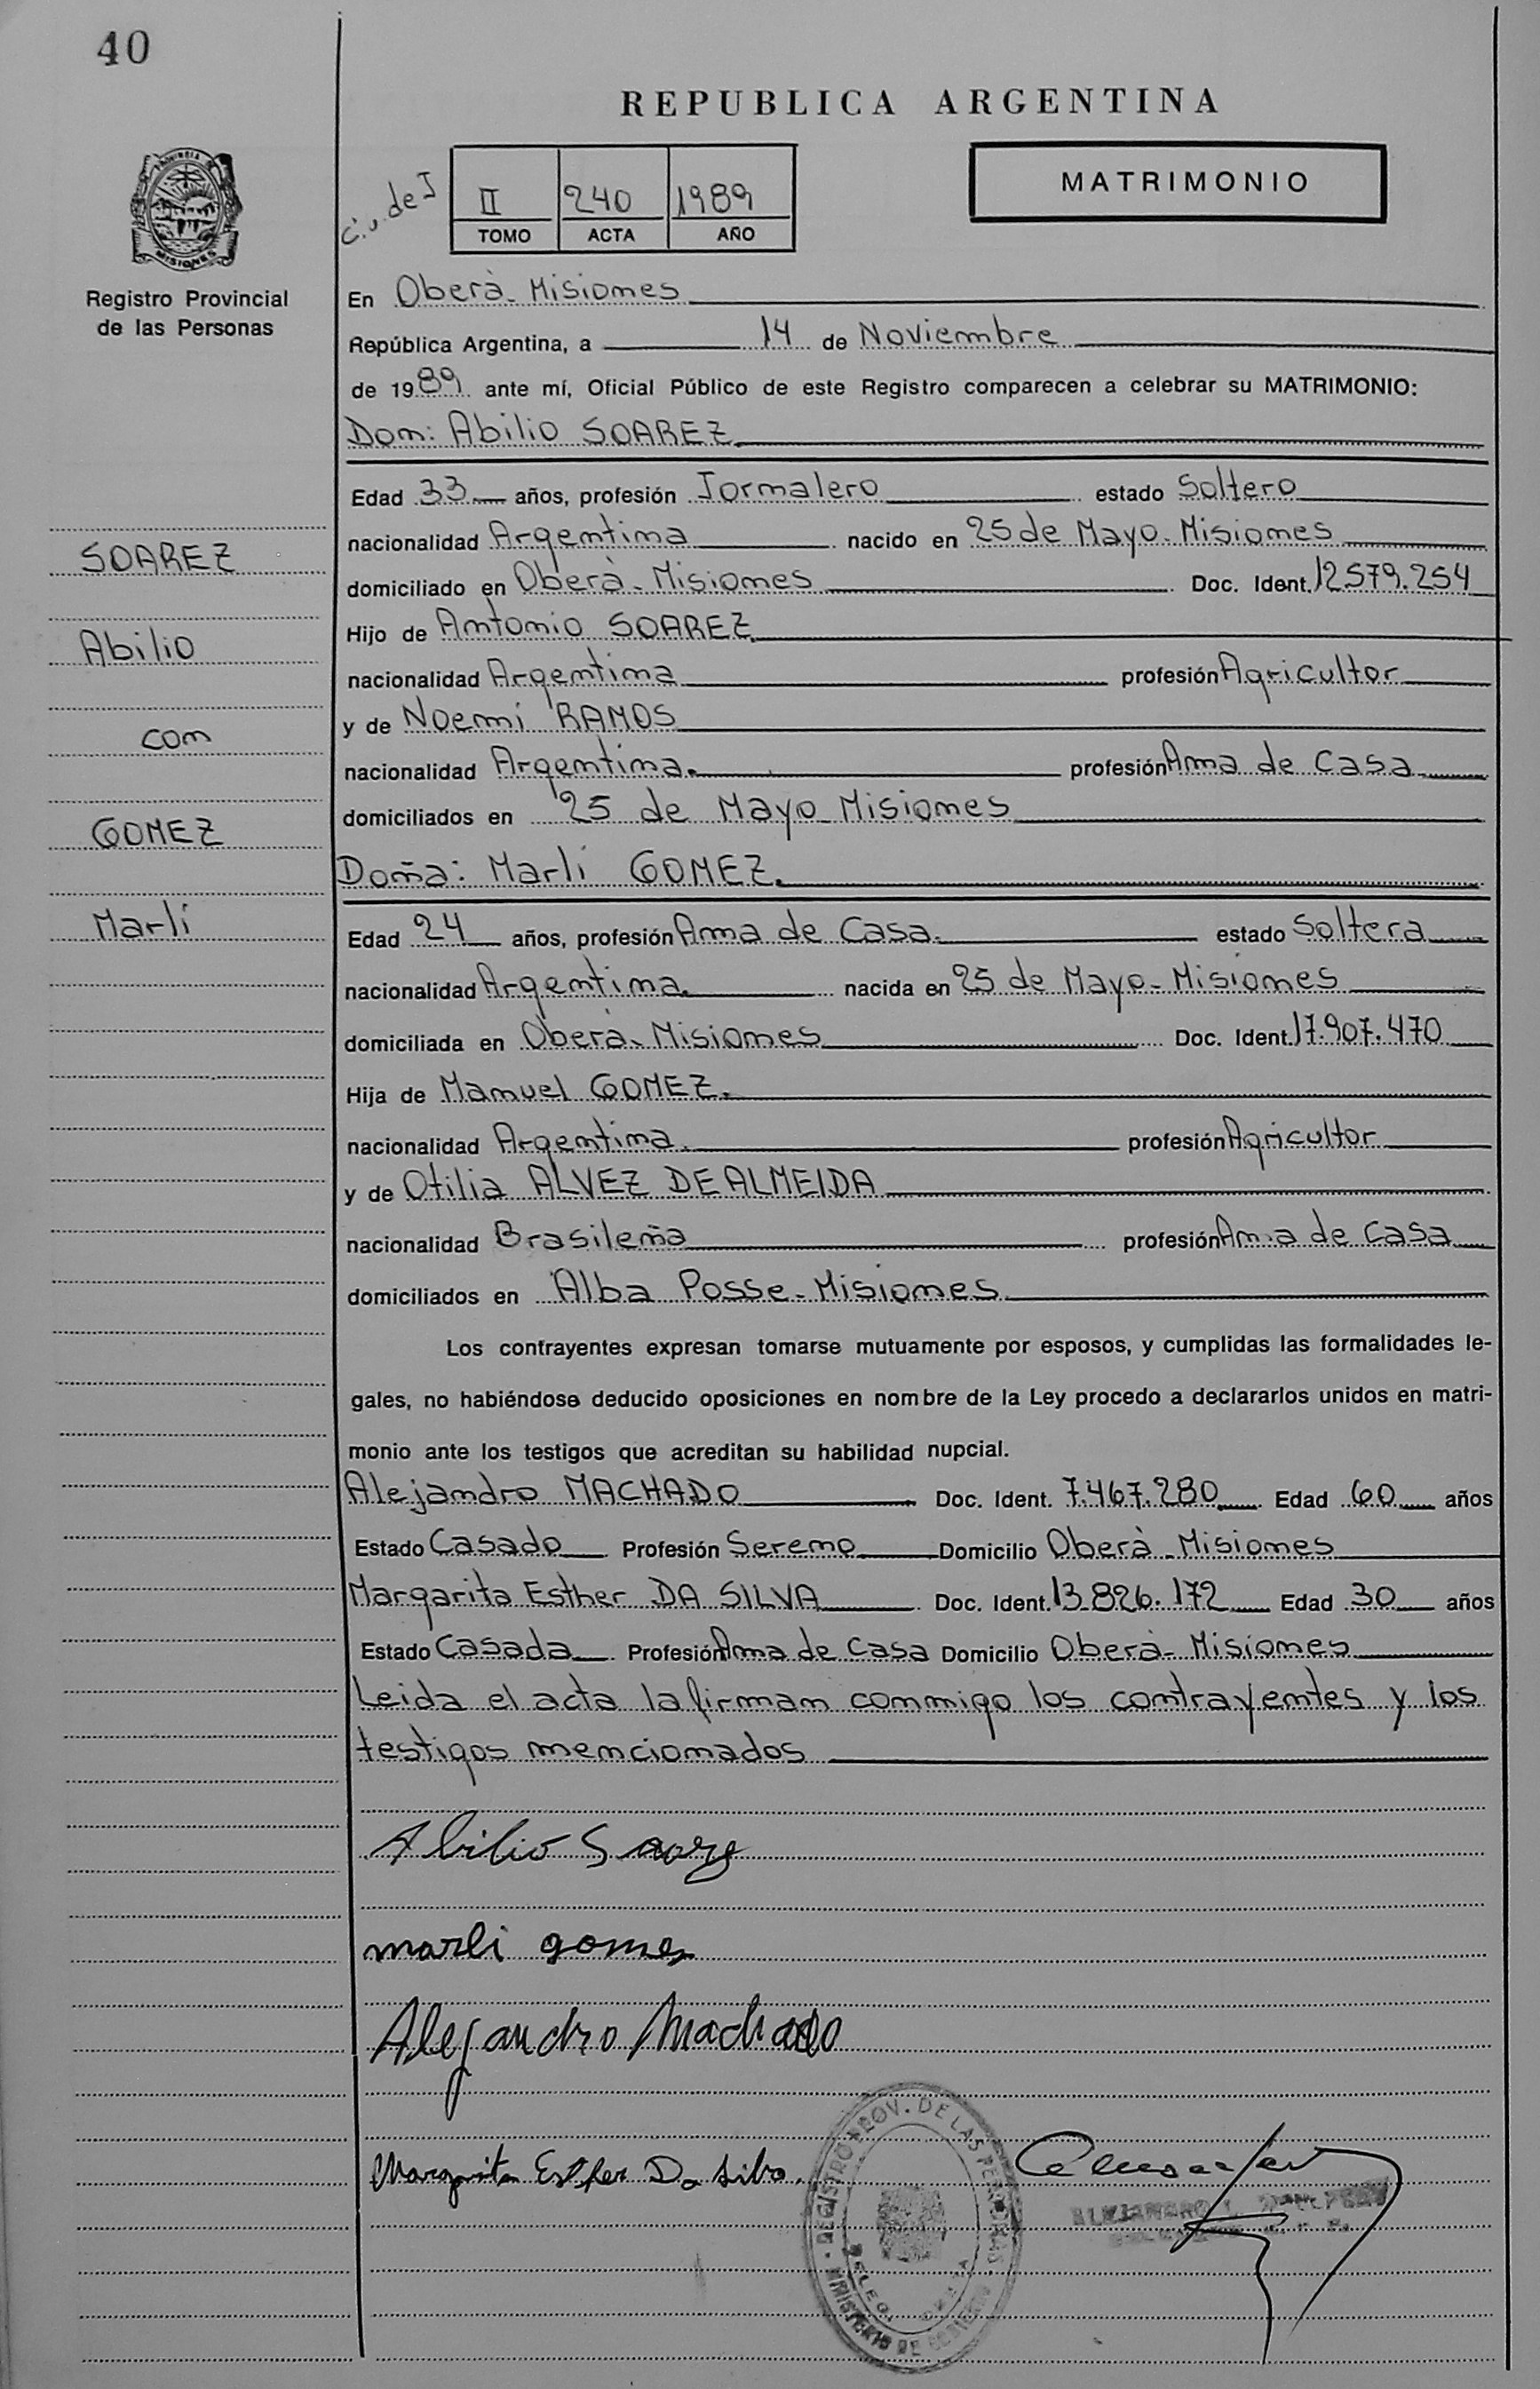 40
REPUBLICA ARGENTINA
PROVINCIA DE
MISIONES
Registro Provincial
de las Personas
MATRIMONIO
II 240 1989
TOMO ACTA AÑO
En Oberà - Misiones
República Argentina, a 14 de Noviembre
de 1989 ante mí, Oficial Público de este Registro comparecen a celebrar su MATRIMONIO:
Don: Abilio SOAREZ
Edad 33 años, profesión Jornalero estado Soltero
nacionalidad Argentina nacido en 25 de Mayo - Misiones
domiciliado en Oberà - Misiones Doc. Ident. 12.579.254
Hijo de Antonio SOAREZ
nacionalidad Argentina profesión Agricultor
y de Noemi RAMOS
nacionalidad Argentina. profesión Ama de Casa
domiciliados en 25 de Mayo - Misiones
Doña: Marli GOMEZ.
Edad 24 años, profesión Ama de Casa. estado Soltera
nacionalidad Argentina. nacida en 25 de Mayo - Misiones
domiciliada en Oberà - Misiones Doc. Ident. 17.907.470
Hija de Manuel GOMEZ.
nacionalidad Argentina. profesión Agricultor
y de Otilia ALVEZ DE ALMEIDA
nacionalidad Brasileña profesión Ama de Casa
domiciliados en Alba Posse - Misiones
SOAREZ
Abilio
con
GOMEZ
Marli
Los contrayentes expresan tomarse mutuamente por esposos, y cumplidas las formalidades le-
gales, no habiéndose deducido oposiciones en nombre de la Ley procedo a declararlos unidos en matri-
monio ante los testigos que acreditan su habilidad nupcial.
Alejandro MACHADO Doc. Ident. 7.467.280 Edad 60 años
Estado Casado Profesión Sereno Domicilio Oberà - Misiones
Margarita Esther DA SILVA Doc. Ident. 13.826.172 Edad 30 años
Estado Casada Profesión Ama de Casa Domicilio Oberà - Misiones
Leida el acta la firman conmigo los contrayentes y los
testigos mencionados
Abilio Soarez
marli gomez
Alejandro Machado
Margarita Esther Da Silva.
REGISTRO PROV. DE LAS PERSONAS
MINISTERIO DE GOBIERNO
ALEJANDRO